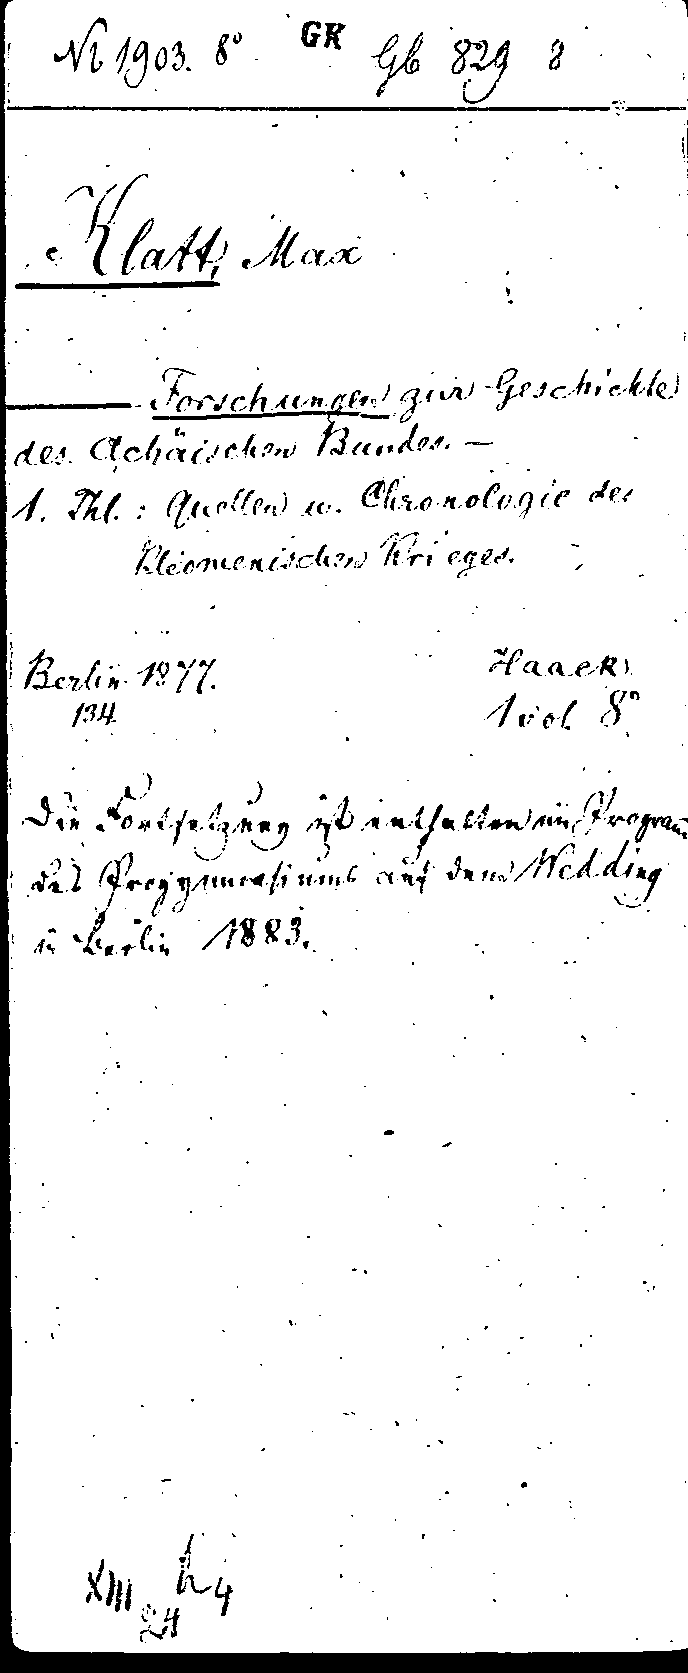 Nt 1903. 8° GK Gb 829 8
Klatt, Max
Forschungen zur Geschichte
des Achäischen Bundes. —
1. Thl.: Quellen u. Chronologie des
Kleomenischen Krieges.
Berlin 1877. Haack
134 1 vol 8°
Die Fortsetzung ist enthalten im Program̄
des Progymnasiums auf dem Wedding
in Berlin 1883.
XIII h4
24